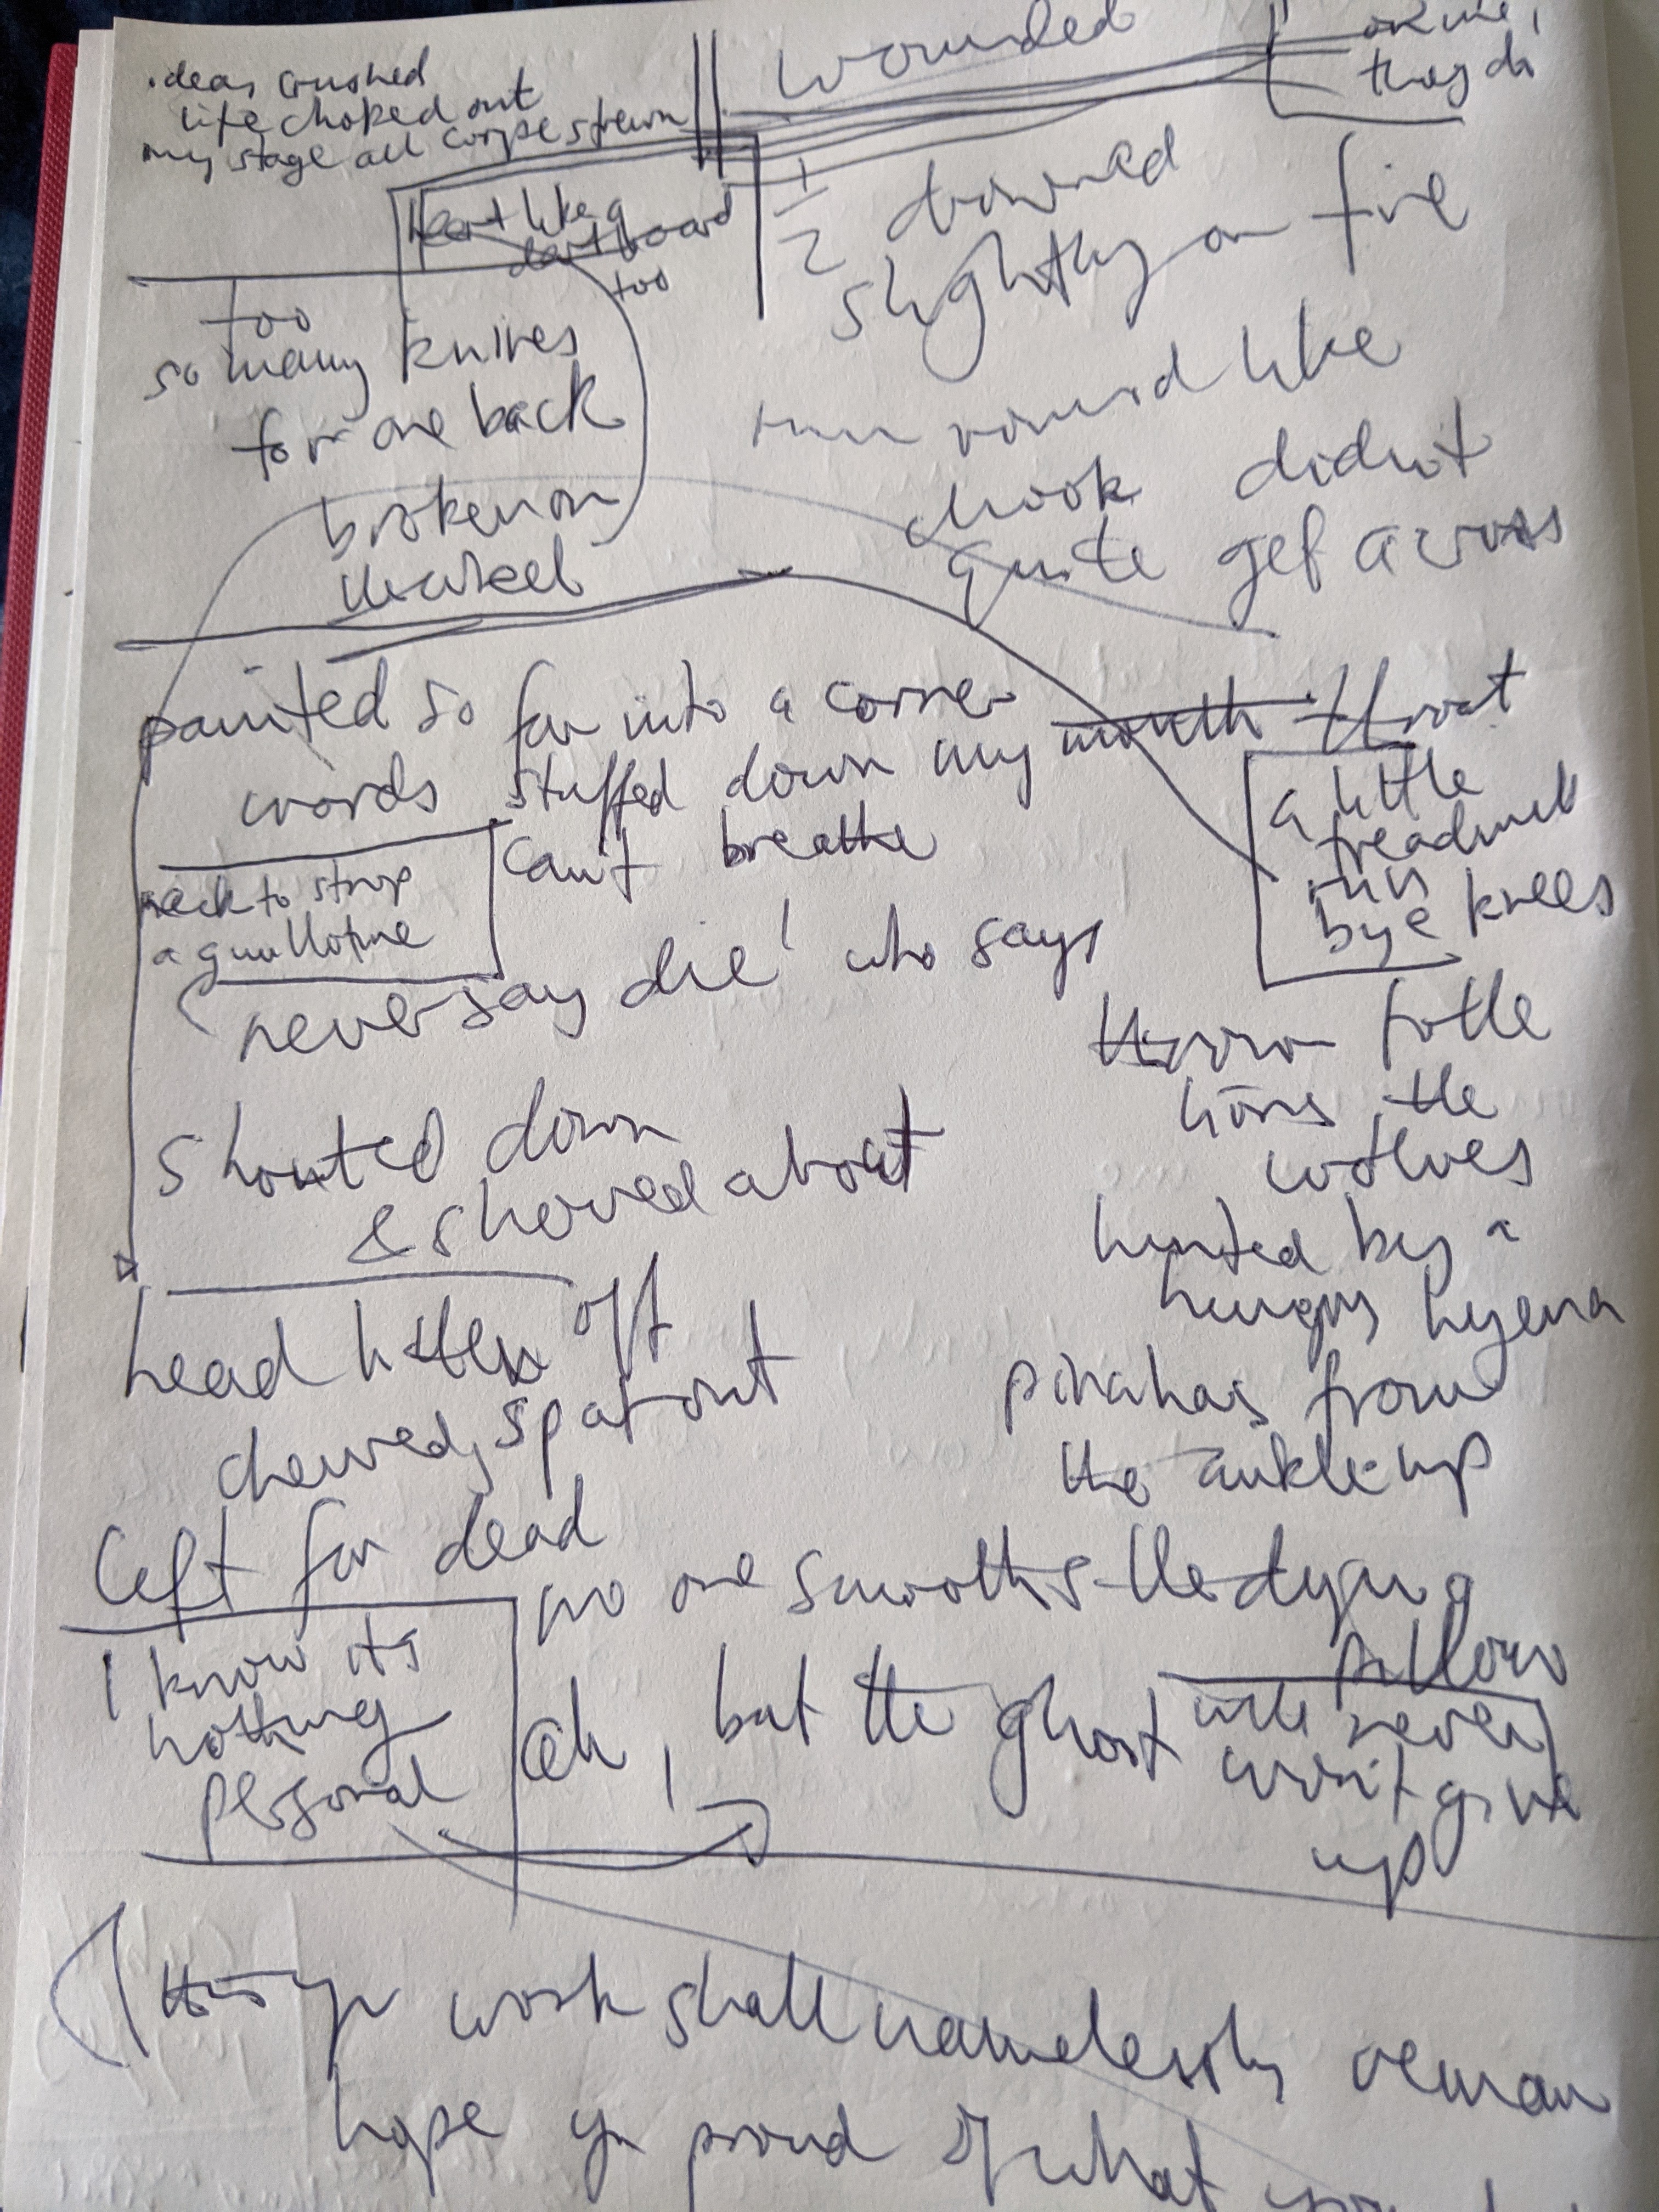 ideas crushed
life choked out
my stage all corpse strewn
wounded
they do
heart like a
dartboard
too
1/2 drowned
slightly on fire
too
so many knives
for one back
broken on
run round like
chook didn't
quite get across
painted so far into a corner
words stuffed down my mouth throat
can't breathe
neck to strop
a guillotine
a little
treadmill
runs
bye knees
never say die' who says
thrown to the
lions the
wolves
shouted down
& shoved about
hunted by a
hungry hyena
head bitten off
chewed, spat out
pirahas from
the ankle up
left for dead
no one smooths the dying
pillow
I know it's
nothing
personal
ah, but the ghost will never
won't give
up
work shall namelessly remain
hope yr proud of what